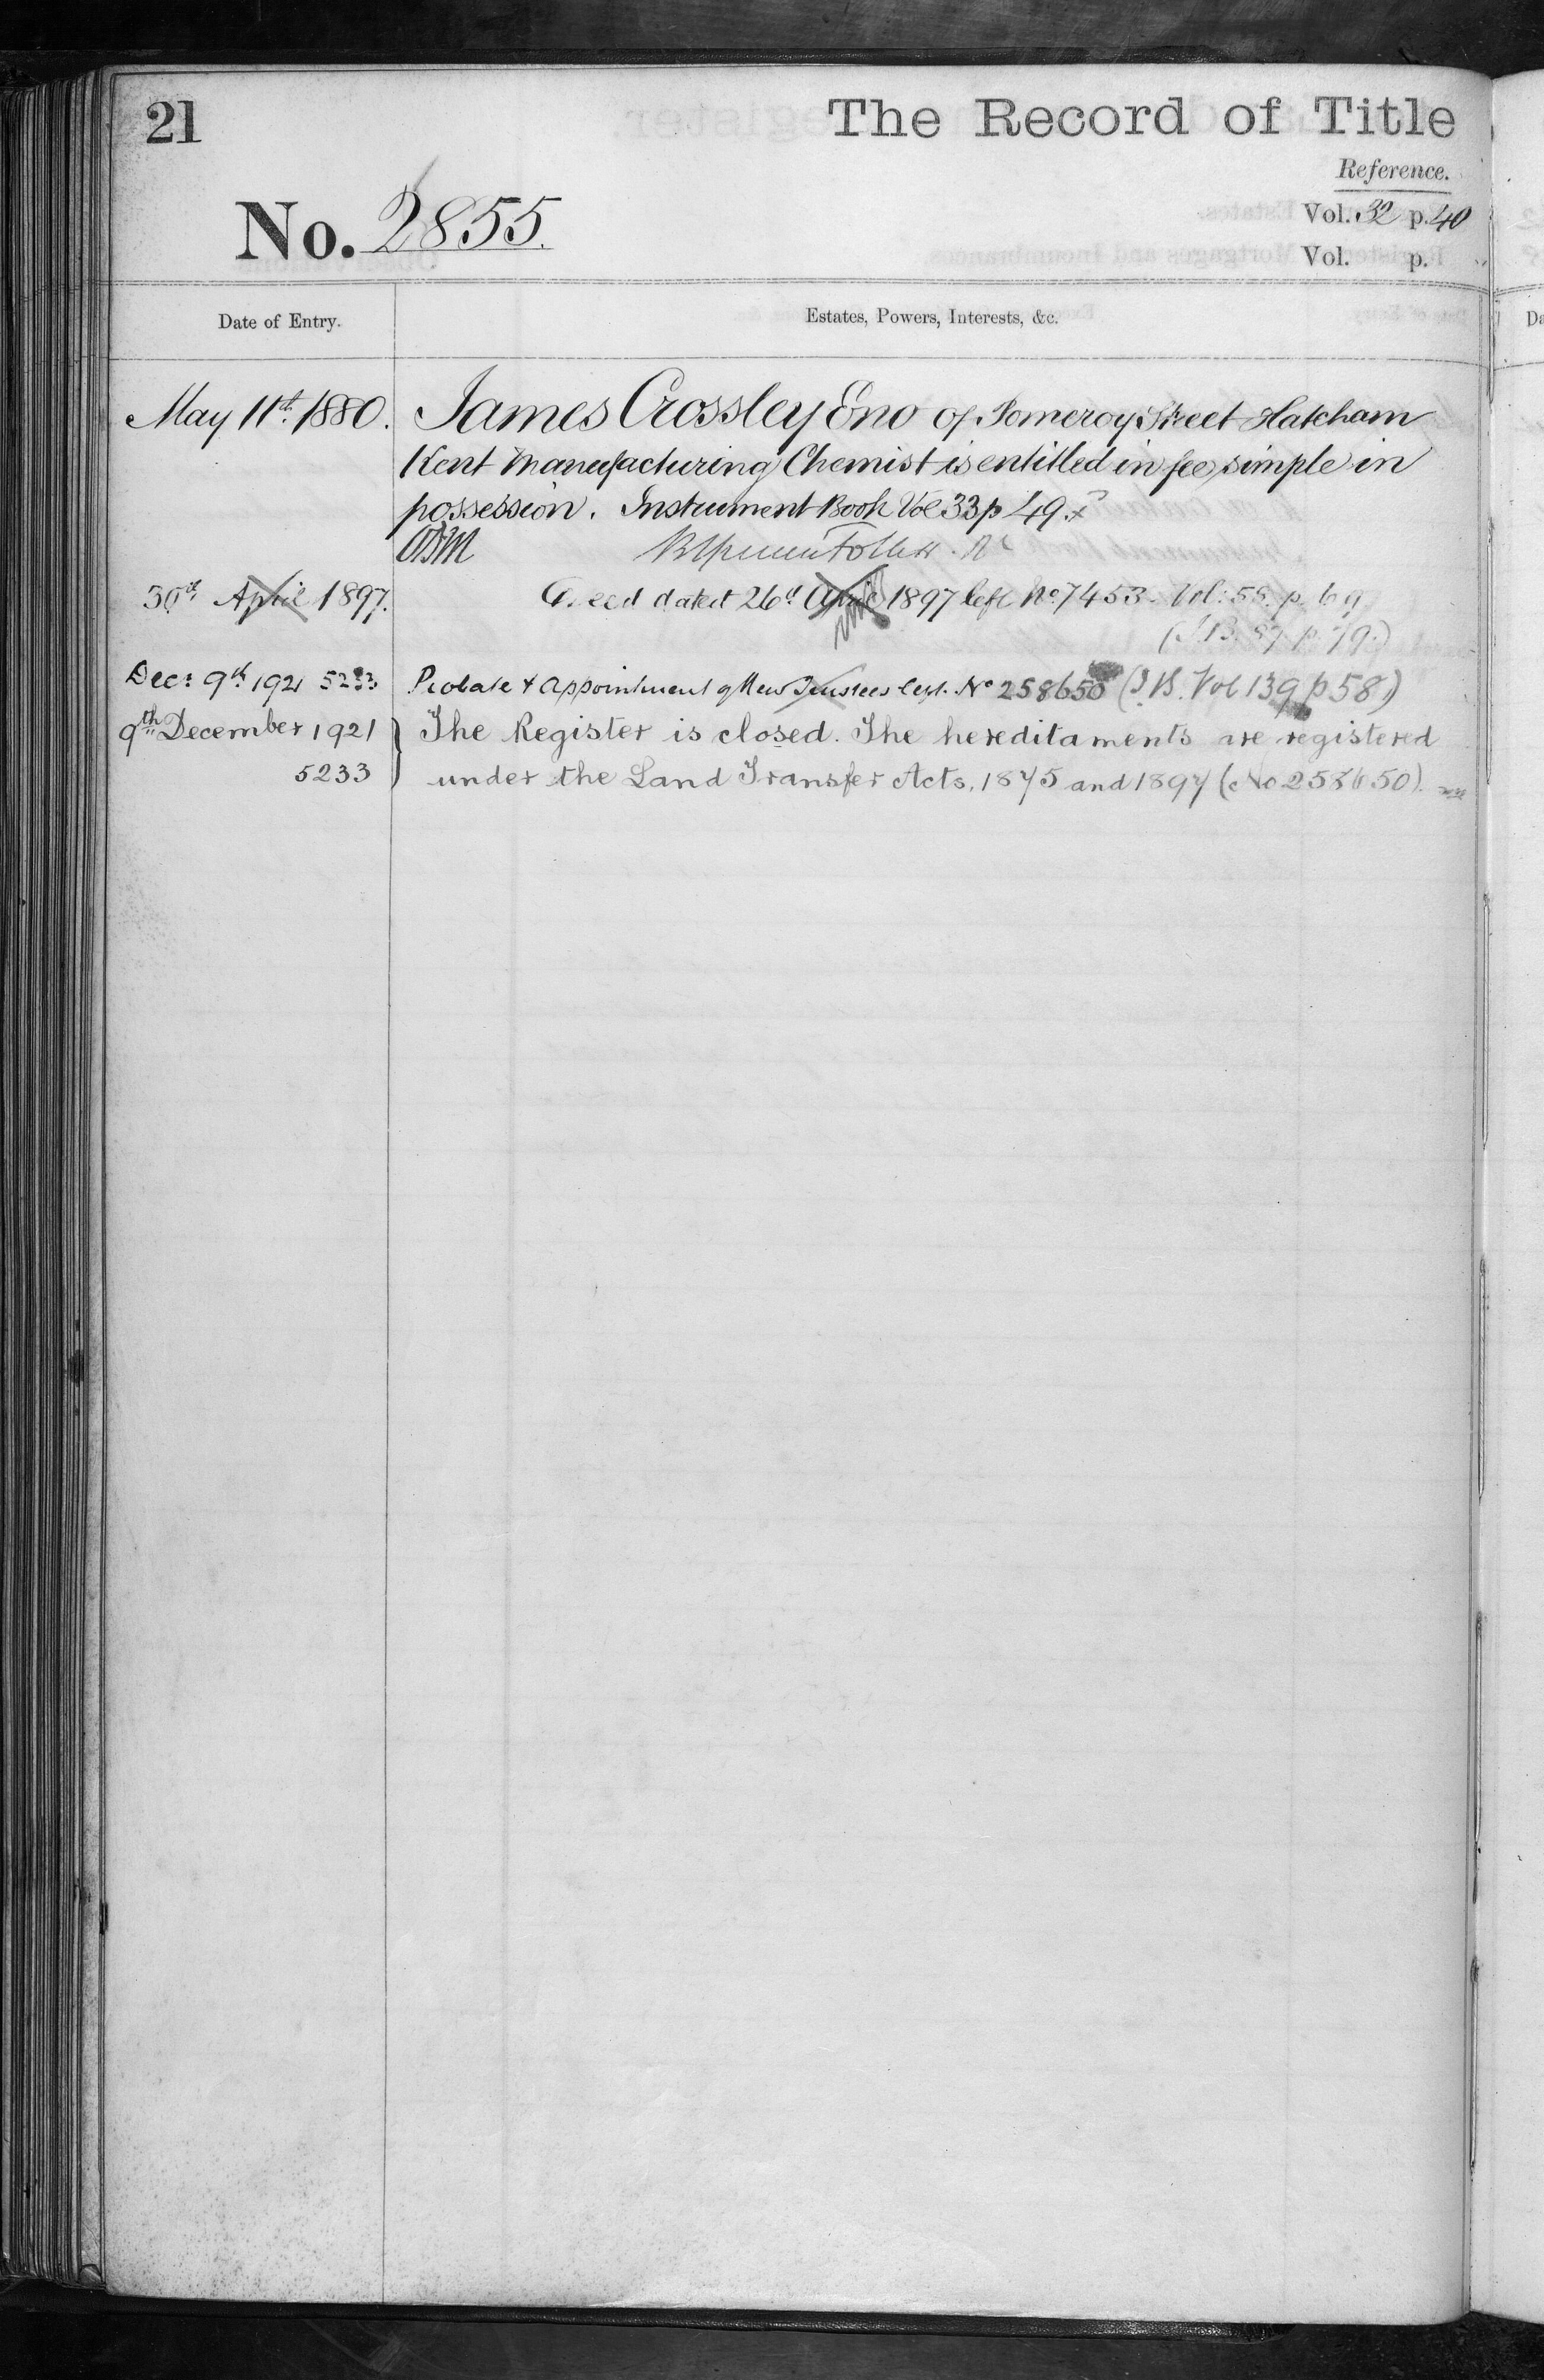 21
The Record of Title
Reference.
No. 2855.
Vol. 32 p. 40
Vol. p.
Date of Entry.
Estates, Powers, Interests, &c.
May 11th. 1880. James Crossley Eno of Pomeroy Street Hatcham
Kent Manufacturing Chemist is entitled in fee simple in
possession. Instrument Book Vol 33 p 49.
30th April 1897. A deed dated 26th April 1897 left No. 7453. Vol: 55. p. 69
(I.B. 87 p. 79.)
Decr 9th 1921 5233 Probate & Appointment of New Trustees left. No 258650 (I.B. Vol 139 p 58)
9th December 1921 The Register is closed. The hereditaments are registered
5233 under the Land Transfer Acts, 1875 and 1897 (No 258650).
Da